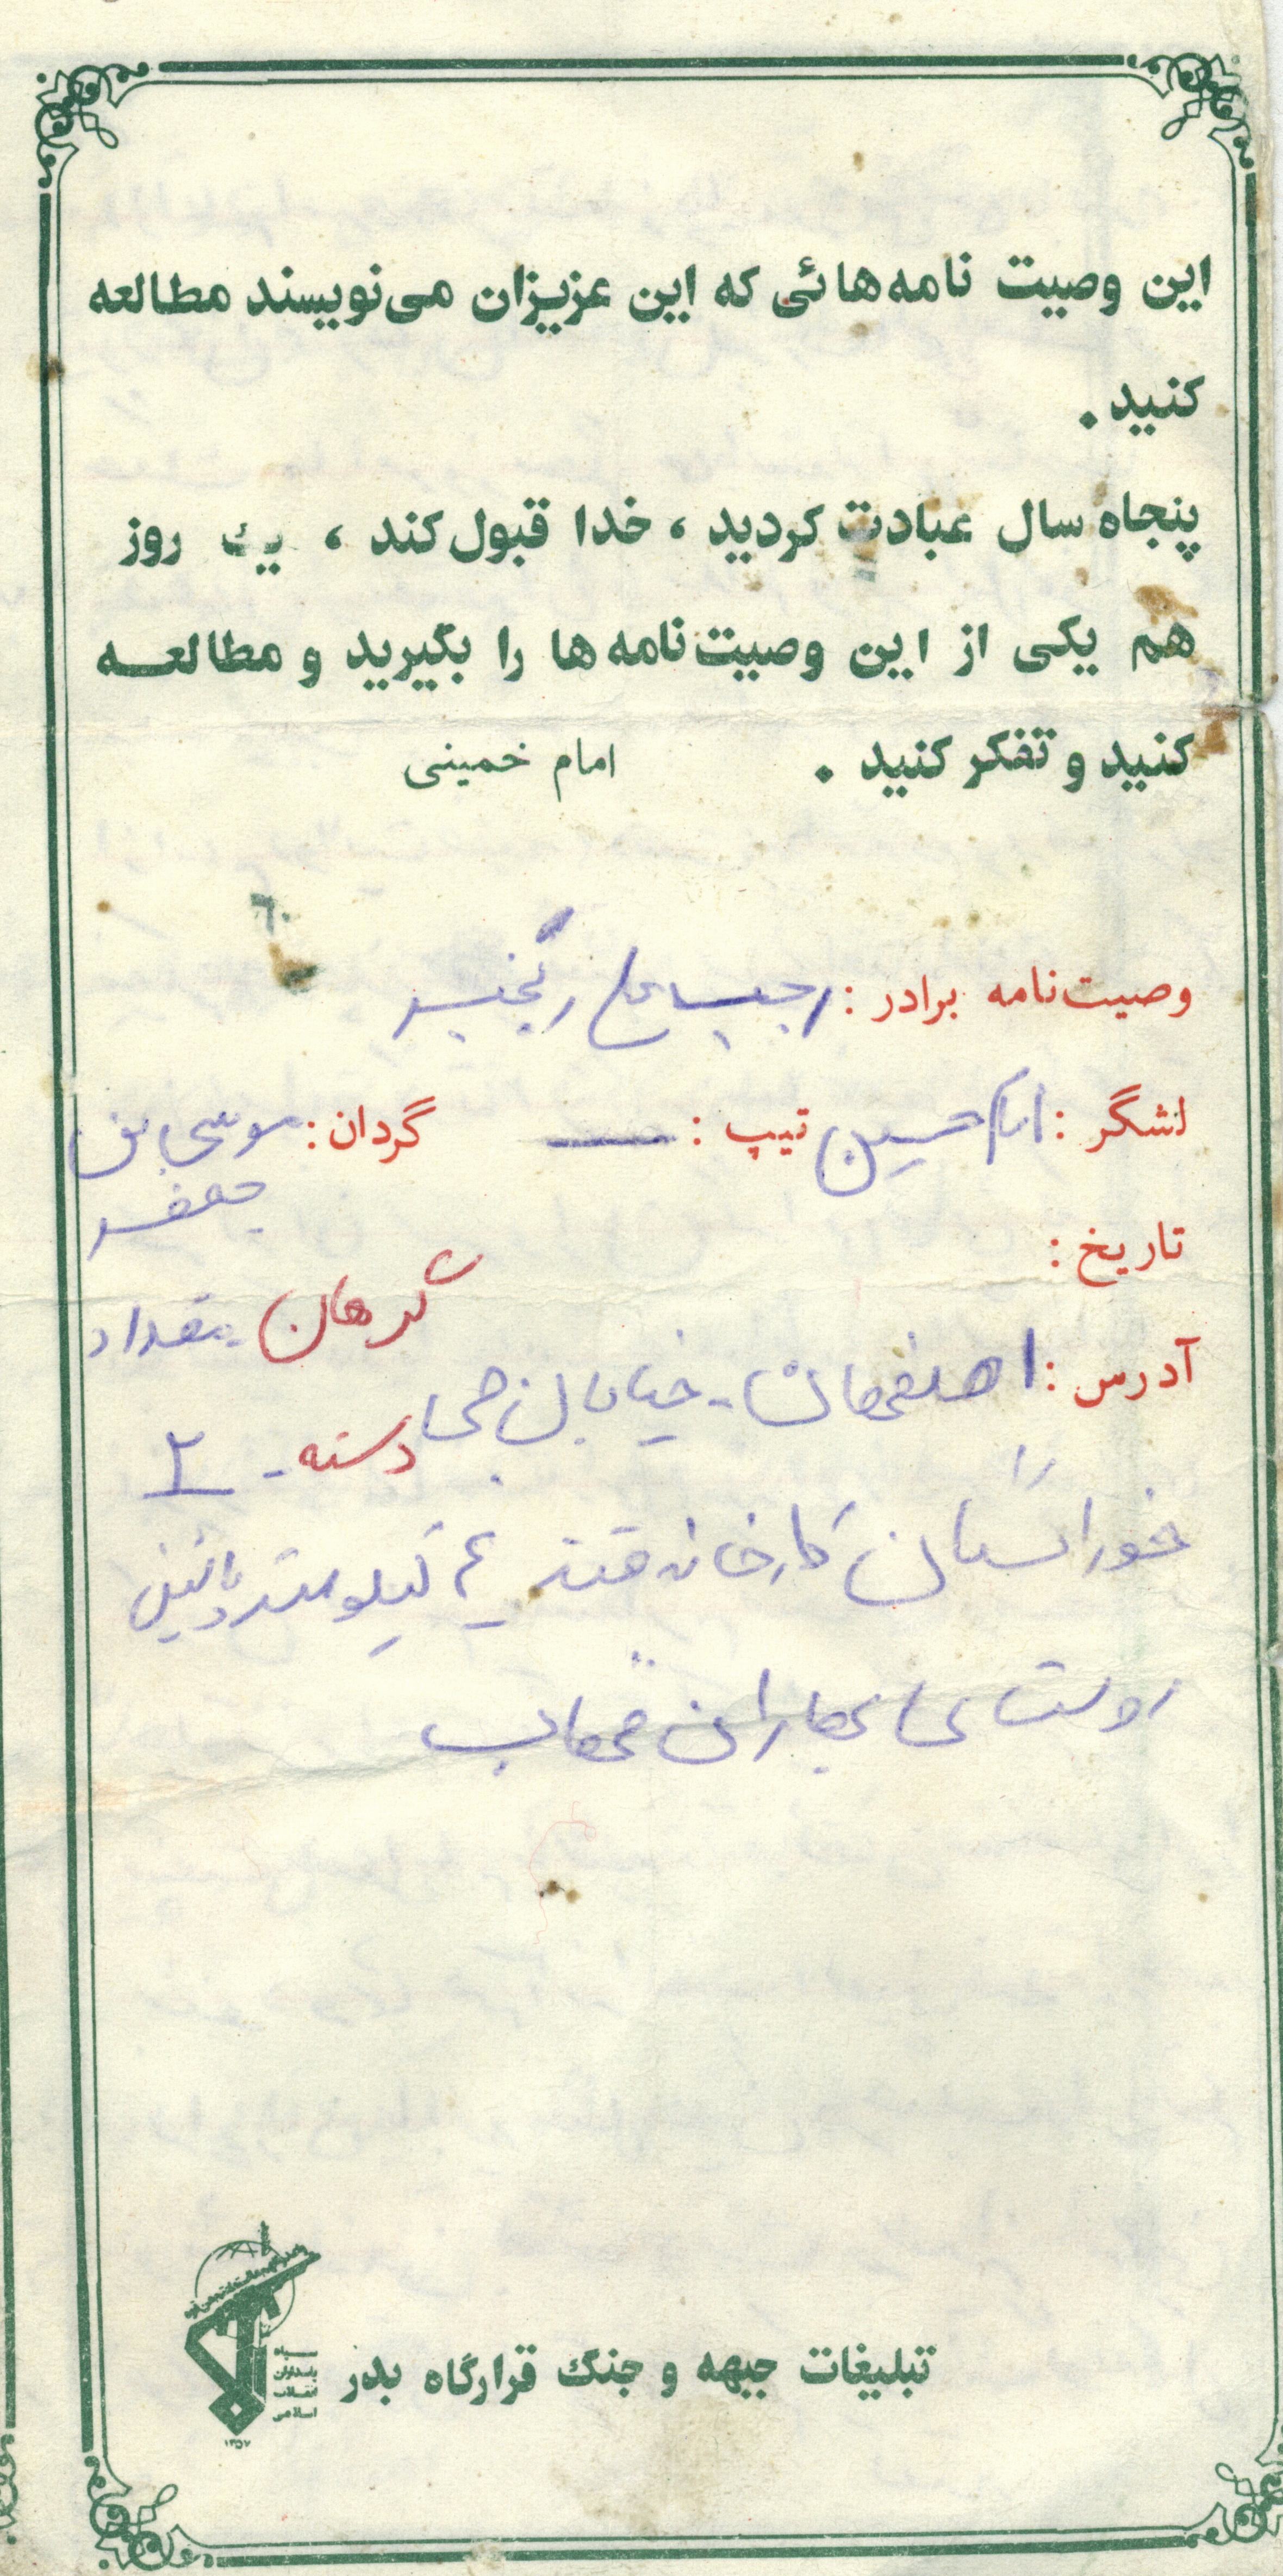 این وصیت نامه‌هائی که این عزیزان می‌نویسند مطالعه
کنید.
پنجاه سال عبادت کردید، خدا قبول کند، یك روز
هم یکی از این وصیت‌نامه‌ها را بگیرید و مطالعه
کنید و تفکر کنید.
امام خمینی
۶۰
وصیت‌نامه برادر: رجبعلی رنجبر
لشگر: امام حسین تیپ: — گردان: موسی بن
جعفر
تاریخ:
گرهان - مقداد
آدرس: اصفهان - خیابان جی
دسته - ۲
خوراسگان کارخانه قند ۴ کیلومتر پائین
روستای قهاب
تبلیغات جبهه و جنگ قرارگاه بدر
سپاه
پاسداران
انقلاب
اسلامی
۱۳۵۷